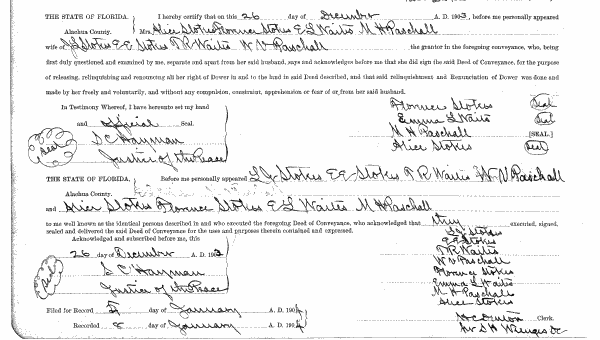 THE STATE OF FLORIDA. I hereby certify that on this 26 day of December A. D. 1903, before me personally appeared
Alachua County. Mrs Alice Stokes Florence Stokes E L Waits M H Paschall
wife of J L Stokes E E Stokes T R Waits W V Paschall the grantor in the foregoing conveyance, who, being
first duly questioned and examined by me, separate and apart from her said husband, says and acknowledges before me that she did sign the said Deed of Conveyance, for the purpose
of releasing, relinquishing and renouncing all her right of Dower in and to the land in said Deed described, and that said relinquishment and Renunciation of Dower was done and
made by her freely and voluntarily, and without any compulsion, constraint, apprehension or fear of or from her said husband.
In Testimony Whereof, I have hereunto set my hand
and official Seal.
Seal
S C Hayman
Justice of the Peace
Florence Stokes Seal
Emma L Waits Seal
M H Paschall [SEAL.]
Alice Stokes Seal
THE STATE OF FLORIDA. Before me personally appeared L J Stokes E E Stokes T R Waits W V Paschall
Alachua County.
and Alice Stokes Florence Stokes E L Waits M H Paschall
to me well known as the identical persons described in and who executed the foregoing Deed of Conveyance, who acknowledged that they executed, signed,
sealed and delivered the said Deed of Conveyance for the uses and purposes therein contained and expressed.
Acknowledged and subscribed before me, this
26 day of December A. D. 1903
Seal
S C Hayman
Justice of the Peace
L J Stokes
E E Stokes
T R Waits
W V Paschall
Florence Stokes
Emma L Waits
M H Paschall
Alice Stokes
Filed for Record 5 day of January A. D. 1904
Recorded 8 day of January A. D. 1904
H C Denton Clerk.